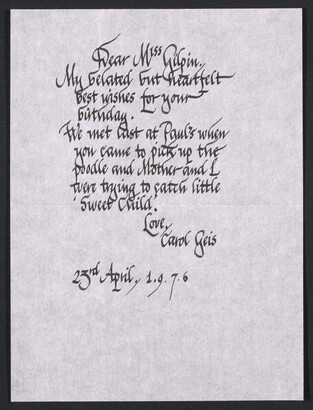 Dear Miss Gilpin,
My belated but heartfelt
best wishes for your
birthday.
We met last at Paul's when
you came to pick up the
poodle and Mother and I
were trying to catch little
'Sweet Child'.
Love,
Carol Geis
23rd April, 1.9.7.6